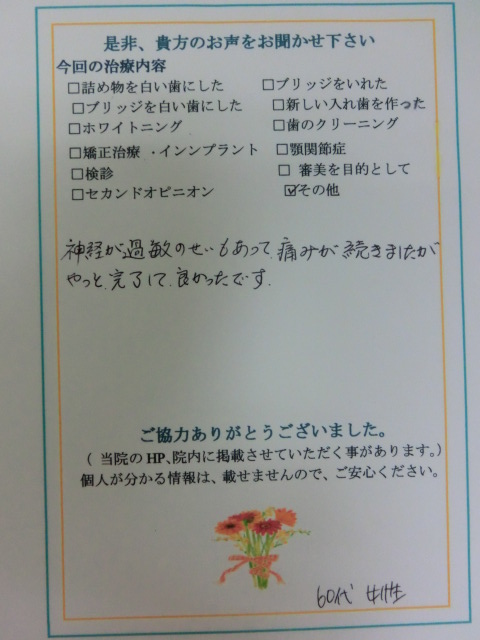 是非、貴方のお声をお聞かせ下さい
今回の治療内容
□詰め物を白い歯にした □ブリッジをいれた
□ブリッジを白い歯にした □新しい入れ歯を作った
□ホワイトニング □歯のクリーニング
□矯正治療・インンプラント □顎関節症
□検診 □ 審美を目的として
□セカンドオピニオン ☑その他
神経が過敏のせいもあって、痛みが続きましたが
やっと、完了して、良かったです。
ご協力ありがとうございました。
( 当院のHP、院内に掲載させていただく事があります。)
個人が分かる情報は、載せませんので、ご安心ください。
60代 女性